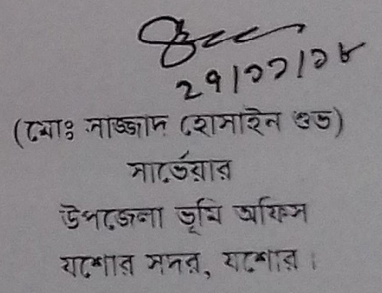 ২৭|১১|১৮
(মোঃ সাজ্জাদ হোসাইন শুভ)
সার্ভেয়ার
উপজেলা ভূমি অফিস
যশোর সদর, যশোর।